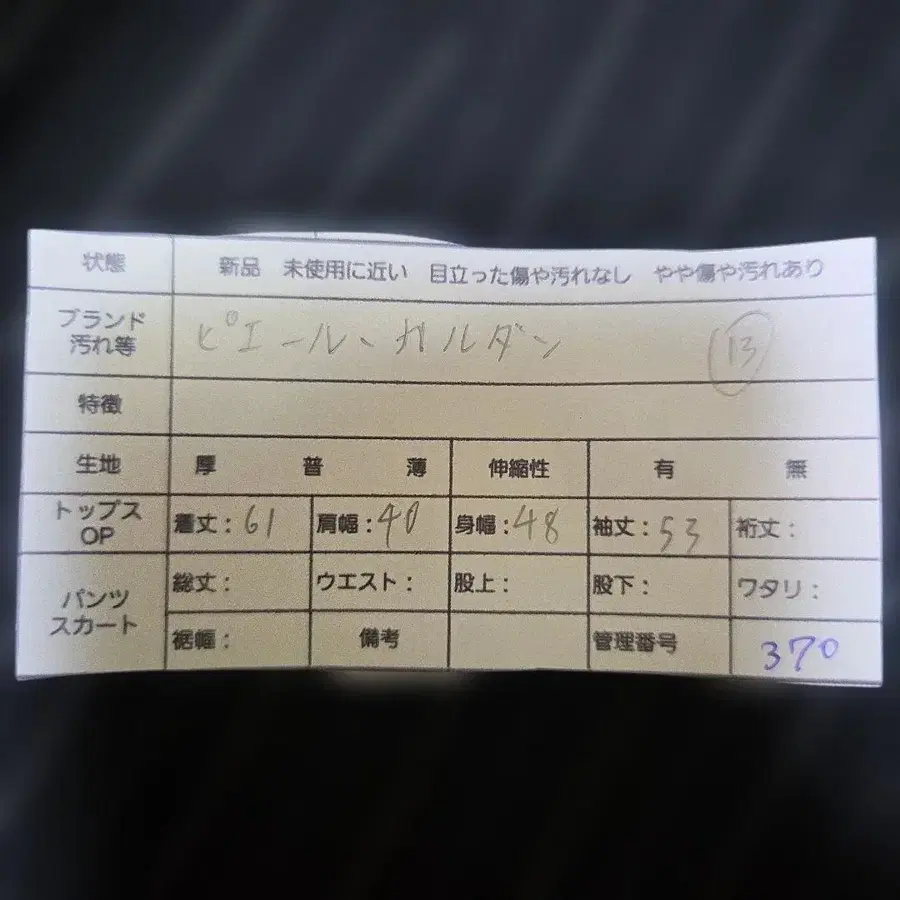 状態 新品 未使用に近い 目立った傷や汚れなし やや傷や汚れあり
ブランド
汚れ等 ピエール、カルダン 13
特徴
生地 厚 普 薄 伸縮性 有 無
トップス
OP 着丈:61 肩幅:40 身幅:48 袖丈:53 裄丈:
パンツ
スカート
総丈: ウエスト: 股上: 股下: ワタリ:
裾幅: 備考 管理番号 370